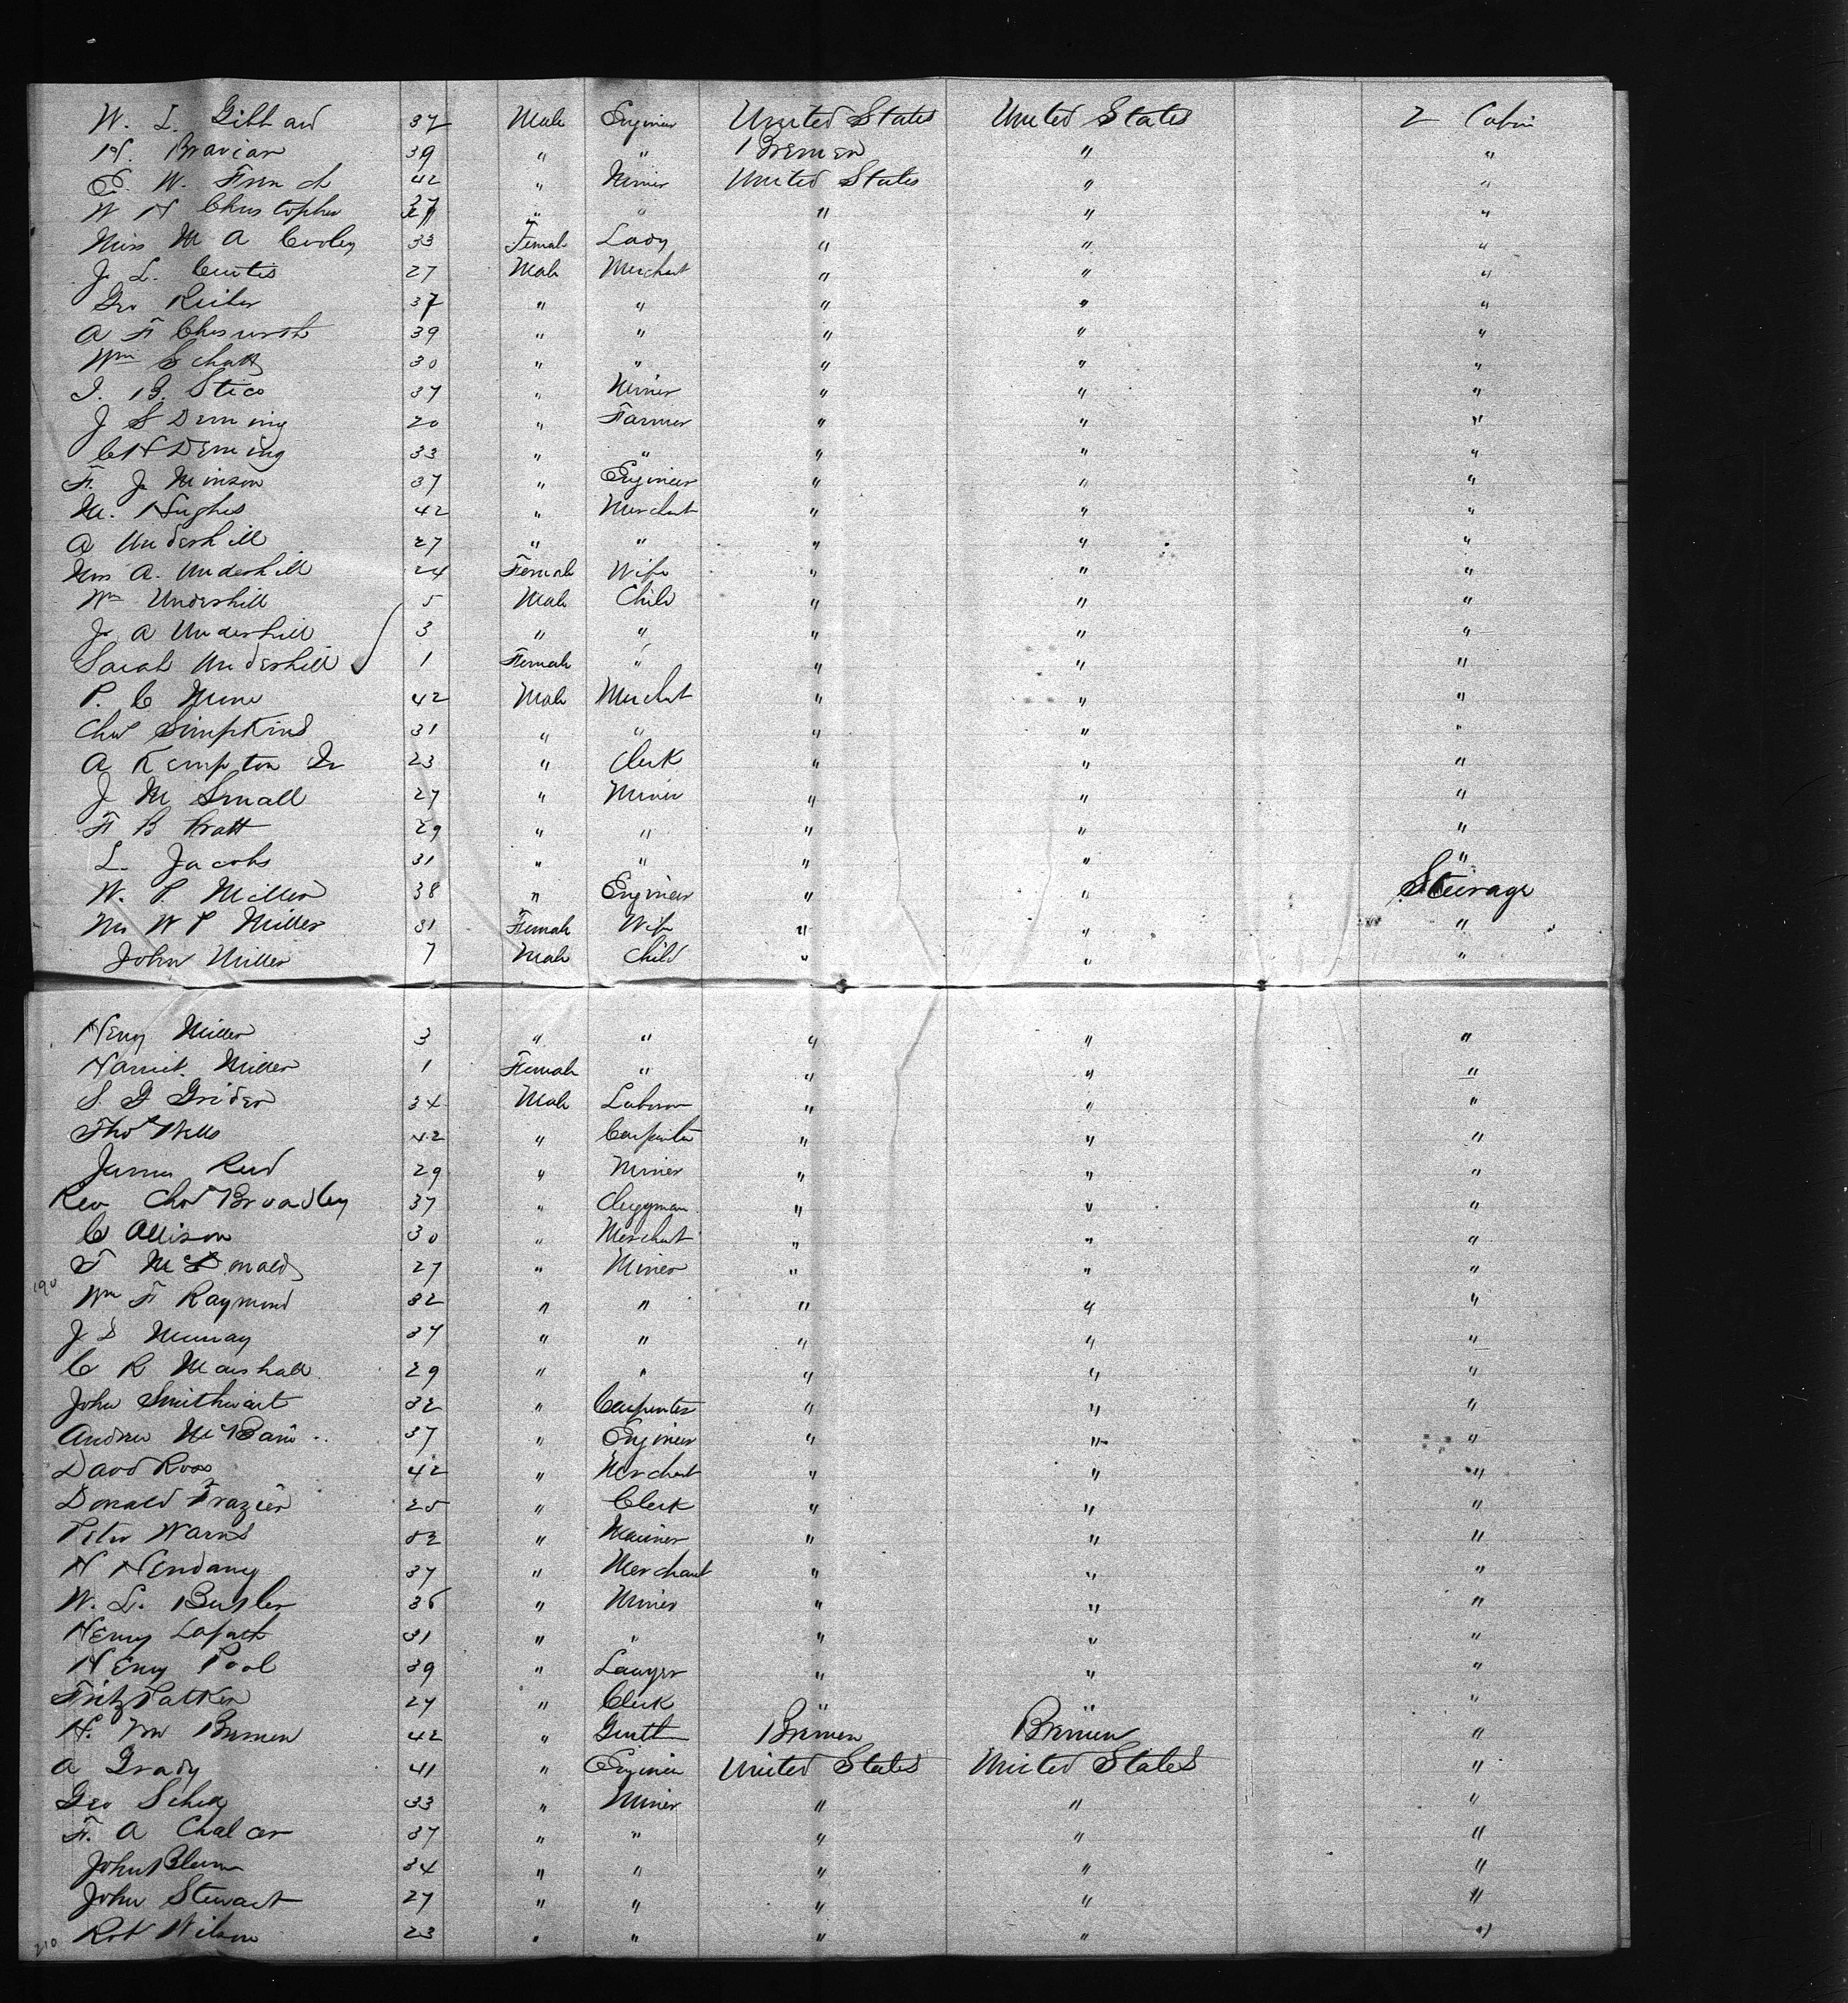 W. L. Gibbard 37 Male Engineer United States United States 2 Cabin
H. Bravian 39 " " Bremen " "
E. W. French 42 " Miner United States " "
W H Christopher 37 " " " " "
Miss M A Cooley 33 Female Lady " " "
J. L. Curtis 27 Male Merchant " " "
Geo Rieher 37 " " " " "
A F Chesworth 39 " " " " "
Wm Schatt 30 " " " " "
I. B. Stico 37 " Miner " " "
J S Deming 20 " Farmer " " "
C H Deming 33 " " " " "
F. J. Minson 37 " Engineer " " "
M. Hughes 42 " Merchant " " "
A Underhill 27 " " " " "
Mrs A. Underhill 24 Female Wife " " "
Wm Underhill 5 Male Child " " "
J. A Underhill 3 " " " " "
Sarah Underhill 1 Female " " " "
P. C Mune 42 Male Merchant " " "
Chas Simpkins 31 " " " " "
A Kempton Jr 23 " Clerk " " "
J M Small 27 " Miner " " "
F B Pratt 29 " " " " "
L. Jacobs 31 " " " " "
W. P. Miller 38 " Engineer " " Steerage
Mrs W P Miller 31 Female Wife " " "
John Miller 7 Male Child " " "
Henry Miller 3 " " " " "
Harriet Miller 1 Female " " " "
S. G Grider 34 Male Laborer " " "
Thos Wells 42 " Carpenter " " "
James Reed 29 " Miner " " "
Rev Chas Broadley 37 " Clergyman " " "
C Allison 30 " Merchant " " "
T McDonald 27 " Miner " " "
190 Wm F Raymond 32 " " " " "
J D Murray 37 " " " " "
C R Marshall 29 " " " " "
John Smithwait 32 " Carpenter " " "
Andrew McBain 37 " Engineer " " "
David Ross 42 " Merchant " " "
Donald Frazier 25 " Clerk " " "
Peter Warns 52 " Mariner " " "
H Hendany 37 " Merchant " " "
W. L. Butler 36 " Miner " " "
Henry Lafath 31 " " " " "
Henry Pool 39 " Lawyer " " "
Fritz Patken 27 " Clerk " " "
H. Von Bremen 42 " Gentl Bremen Bremen "
A Grady 41 " Engineer United States United States "
Geo Schuz 33 " Miner " " "
F. A Chalcer 37 " " " " "
John Blum 34 " " " " "
John Stewart 27 " " " " "
210 Robt Wilson 23 " " " " "